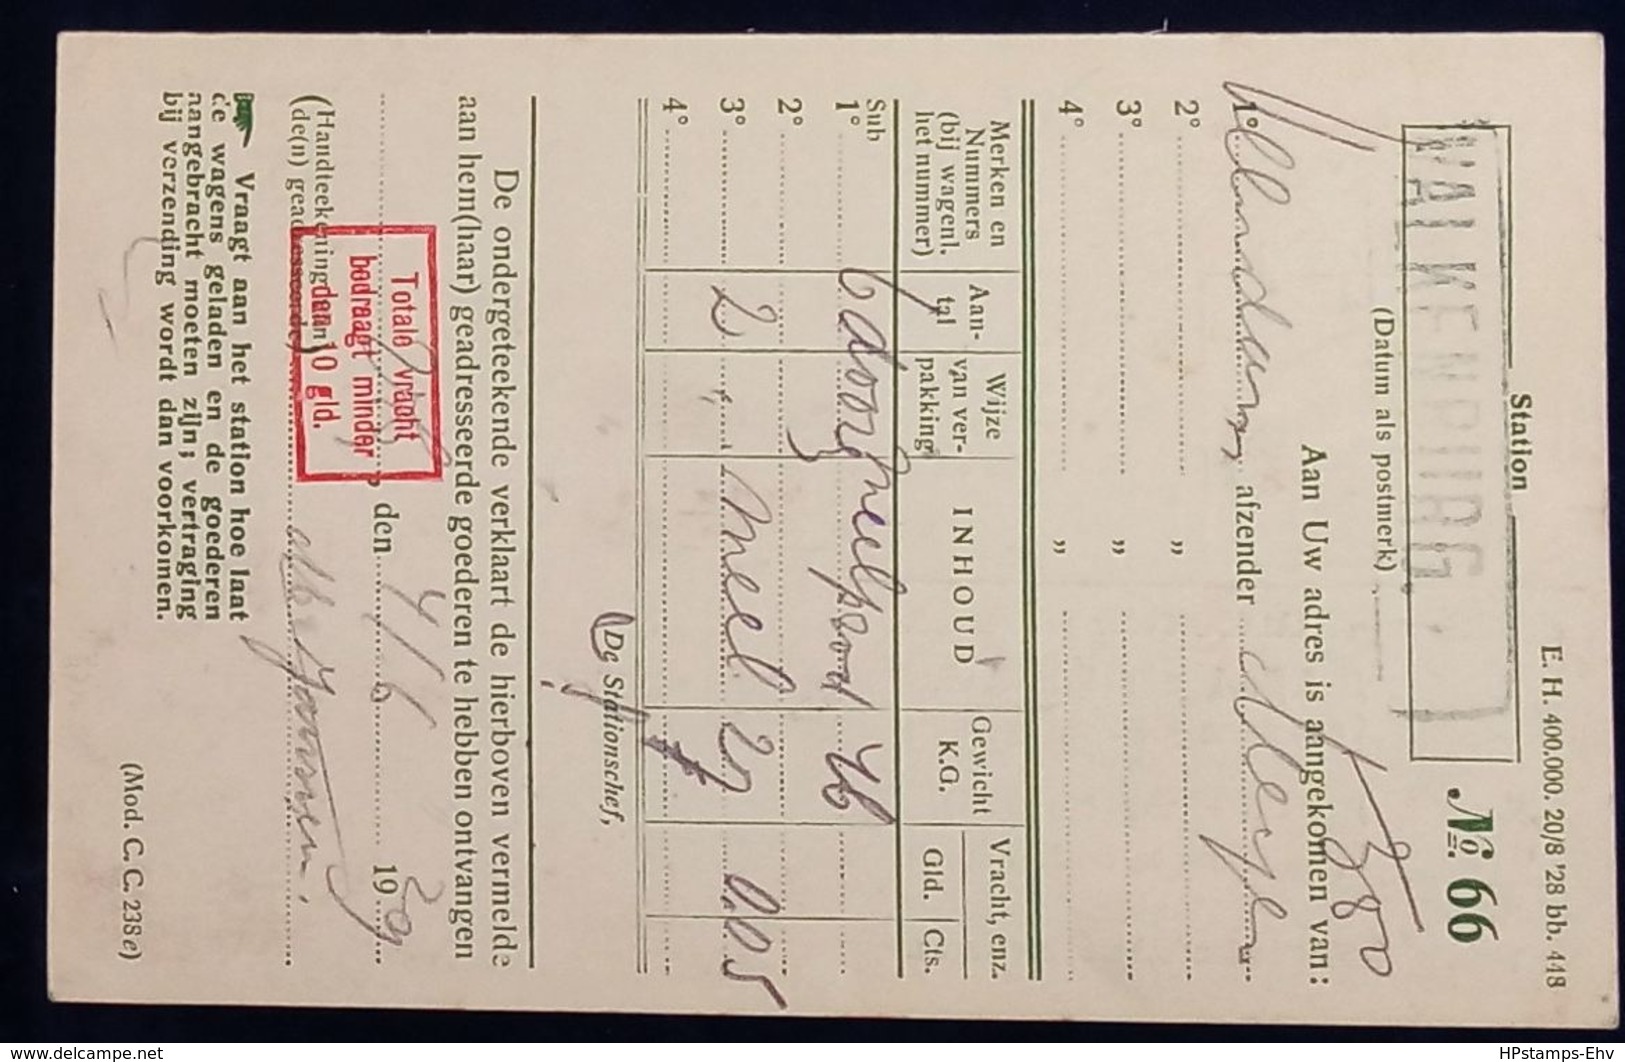 E. H. 400.000. 20/8 '28 bb. 448
Station
VALKENBURG.
No 66
(Datum als postmerk)
Aan Uw adres is aangekomen van:
1° afzender
2° „
3° „
4° „
Merken en Nummers (bij wagenl. het nummer)
Aantal
Wijze van verpakking
INHOUD
Gewicht K.G.
Vracht, enz.
Gld. Cts.
Sub
1° 6 46
2°
3° 2 „ Meel 27
4°
De Stationschef,
De ondergeteekende verklaart de hierboven vermelde
aan hem(haar) geadresseerde goederen te hebben ontvangen
den 4/6 1929
(Handteekening van)
(de(n) geadresseerde)
Totale vracht
bedraagt minder
dan 10 gld.
Vraagt aan het station hoe laat
de wagens geladen en de goederen
aangebracht moeten zijn; vertraging
bij verzending wordt dan voorkomen.
(Mod. C. C. 238e)
www.delcampe.net
HPstamps-Ehv